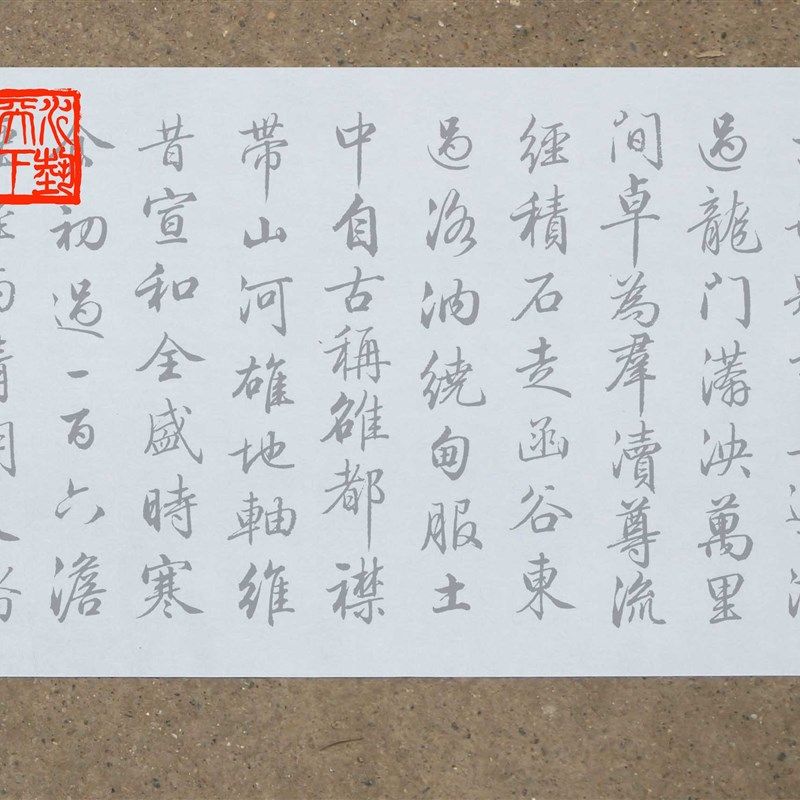 過龍門滿泱萬里
間卓為羣瀆尊流
經積石走函谷東
過洛汭繞甸服土
中自古稱雒都襟
帶山河雄地軸維
昔宣和全盛時寒
初過一百六澹